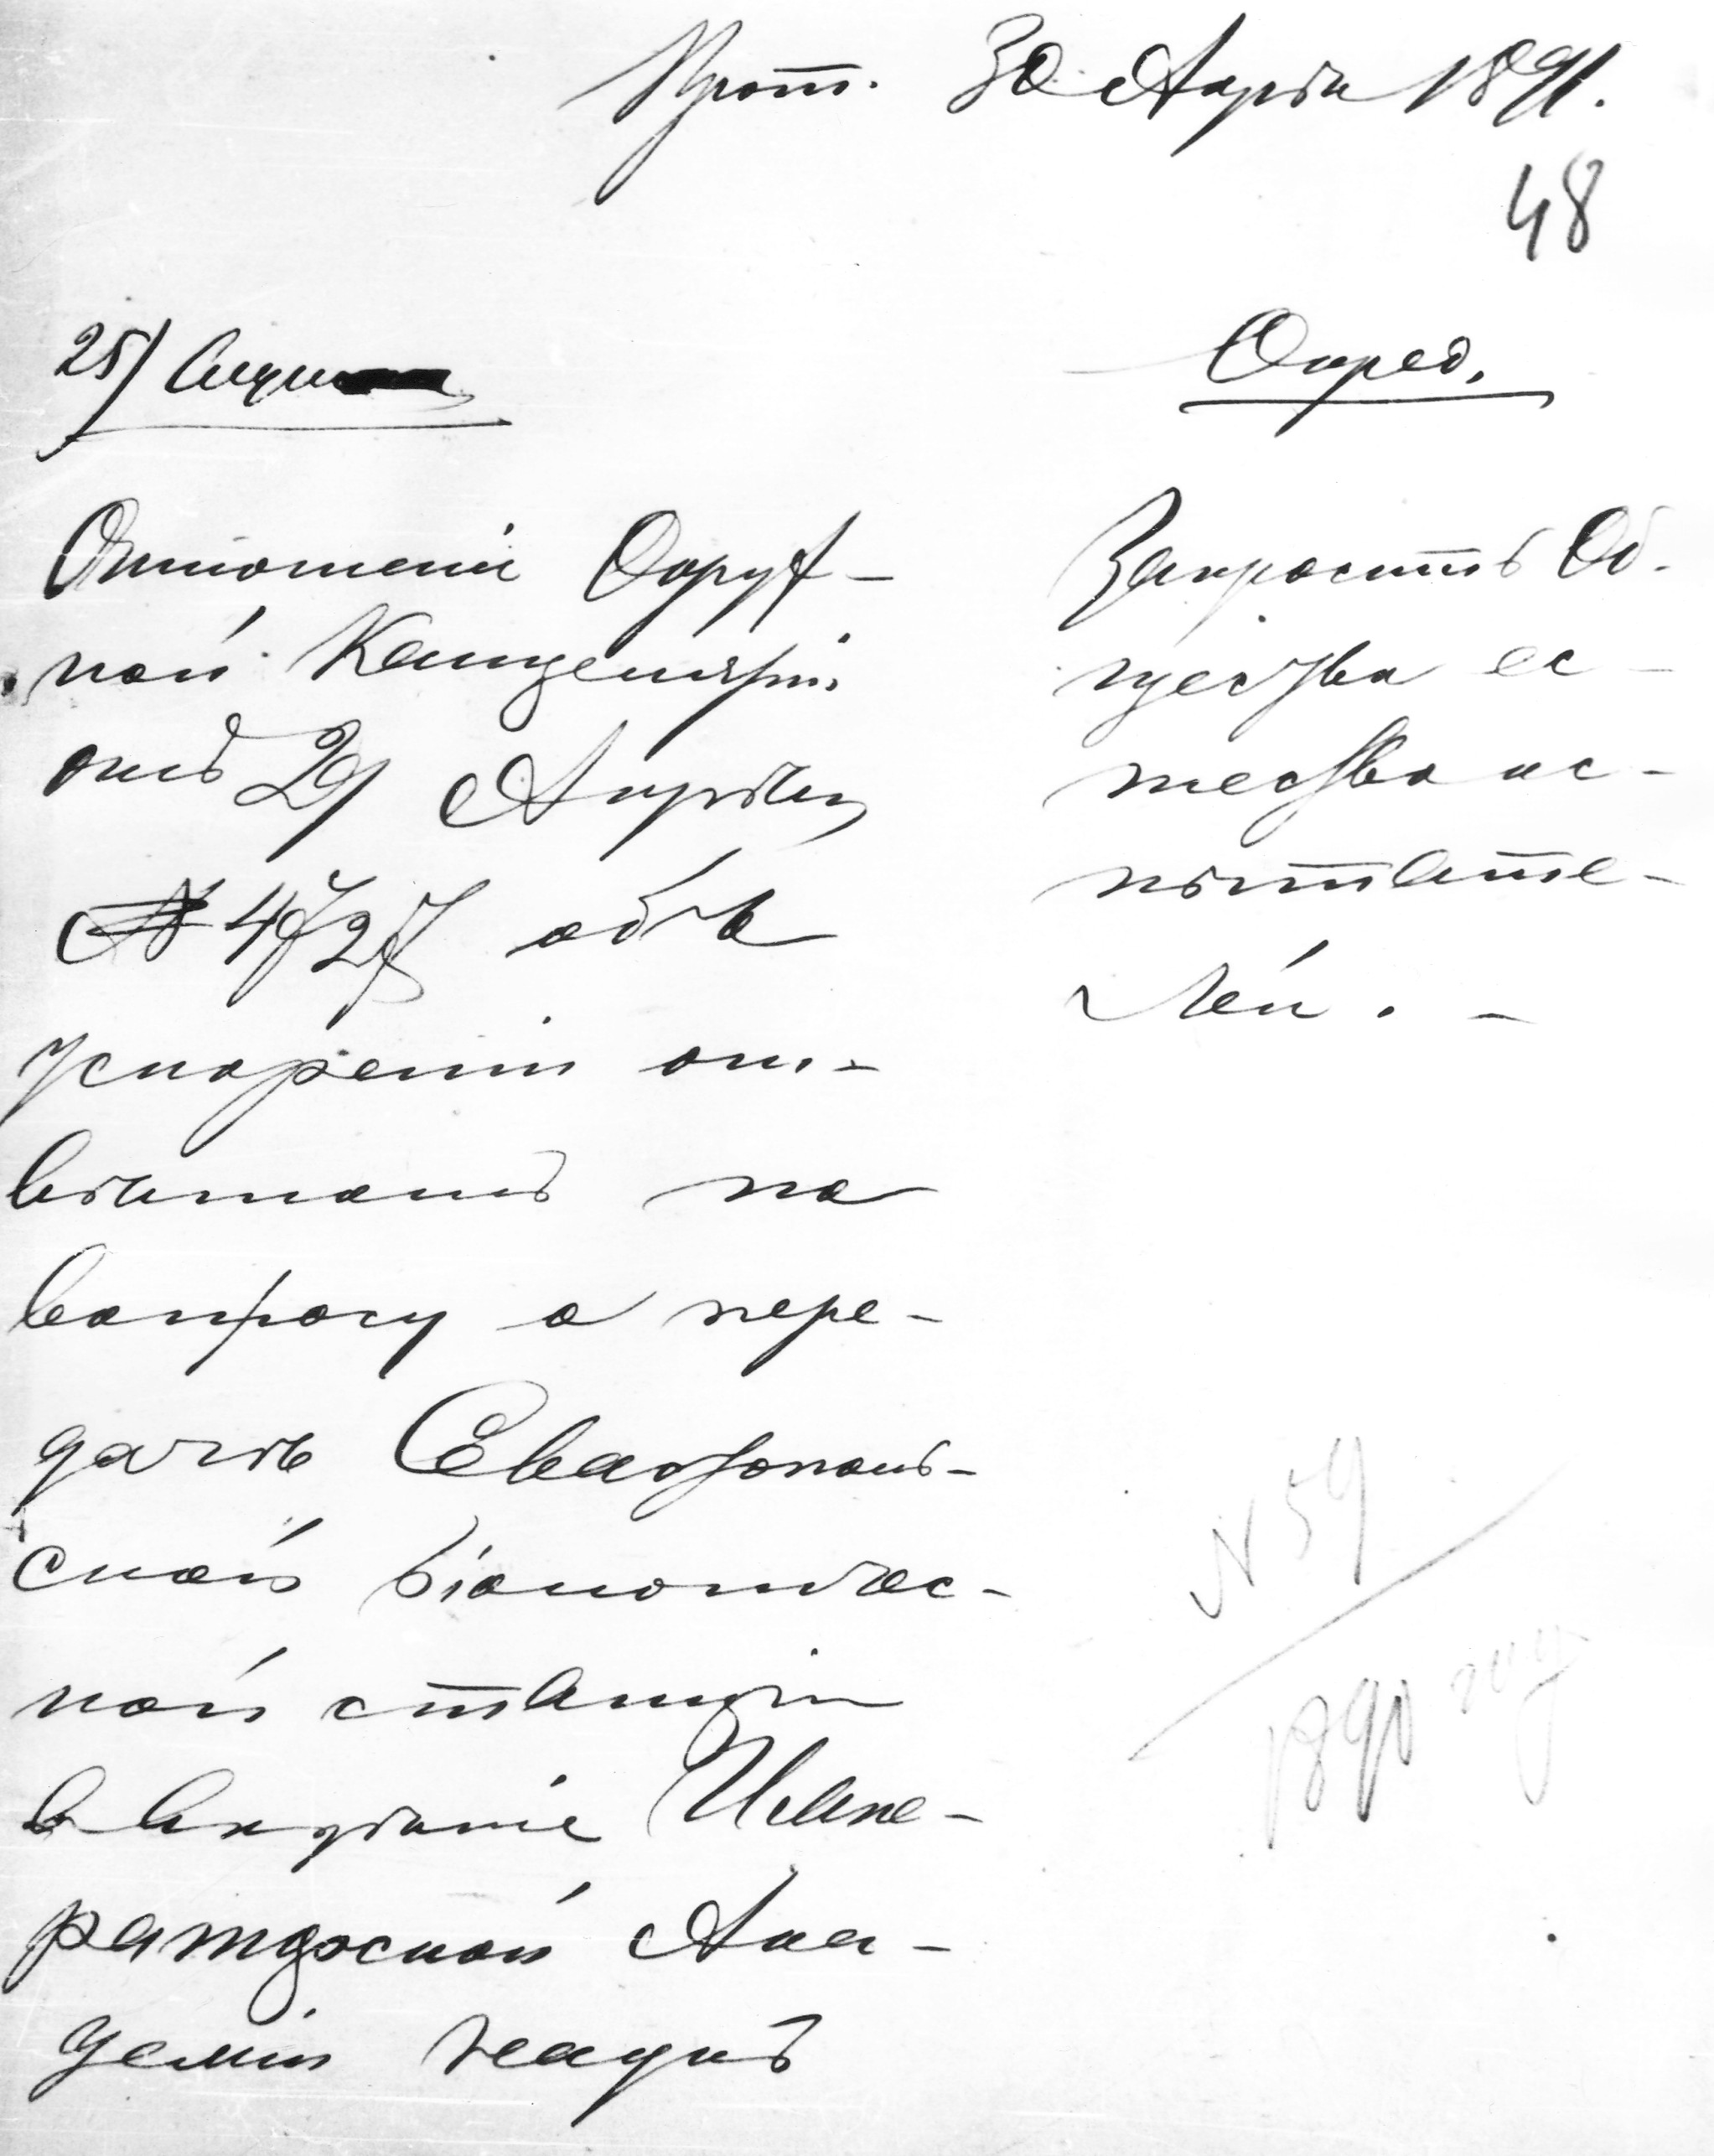 Прот. 30 Апрѣля 1891.
48
25/ Слуш
Опред.
Отношеніе Окруж-
ной Канцеляріи
отъ 29 Апрѣля
№ 4727 объ
ускореніи от-
вѣтомъ по
вопросу о пере-
дачѣ Севастополь-
ской біологичес-
кой станціи
в вѣдѣніе Импе-
раторской Ака-
деміи наукъ
Запросить Об-
щество ес-
тествоис-
пытате-
лей. -
N 59
1890 году